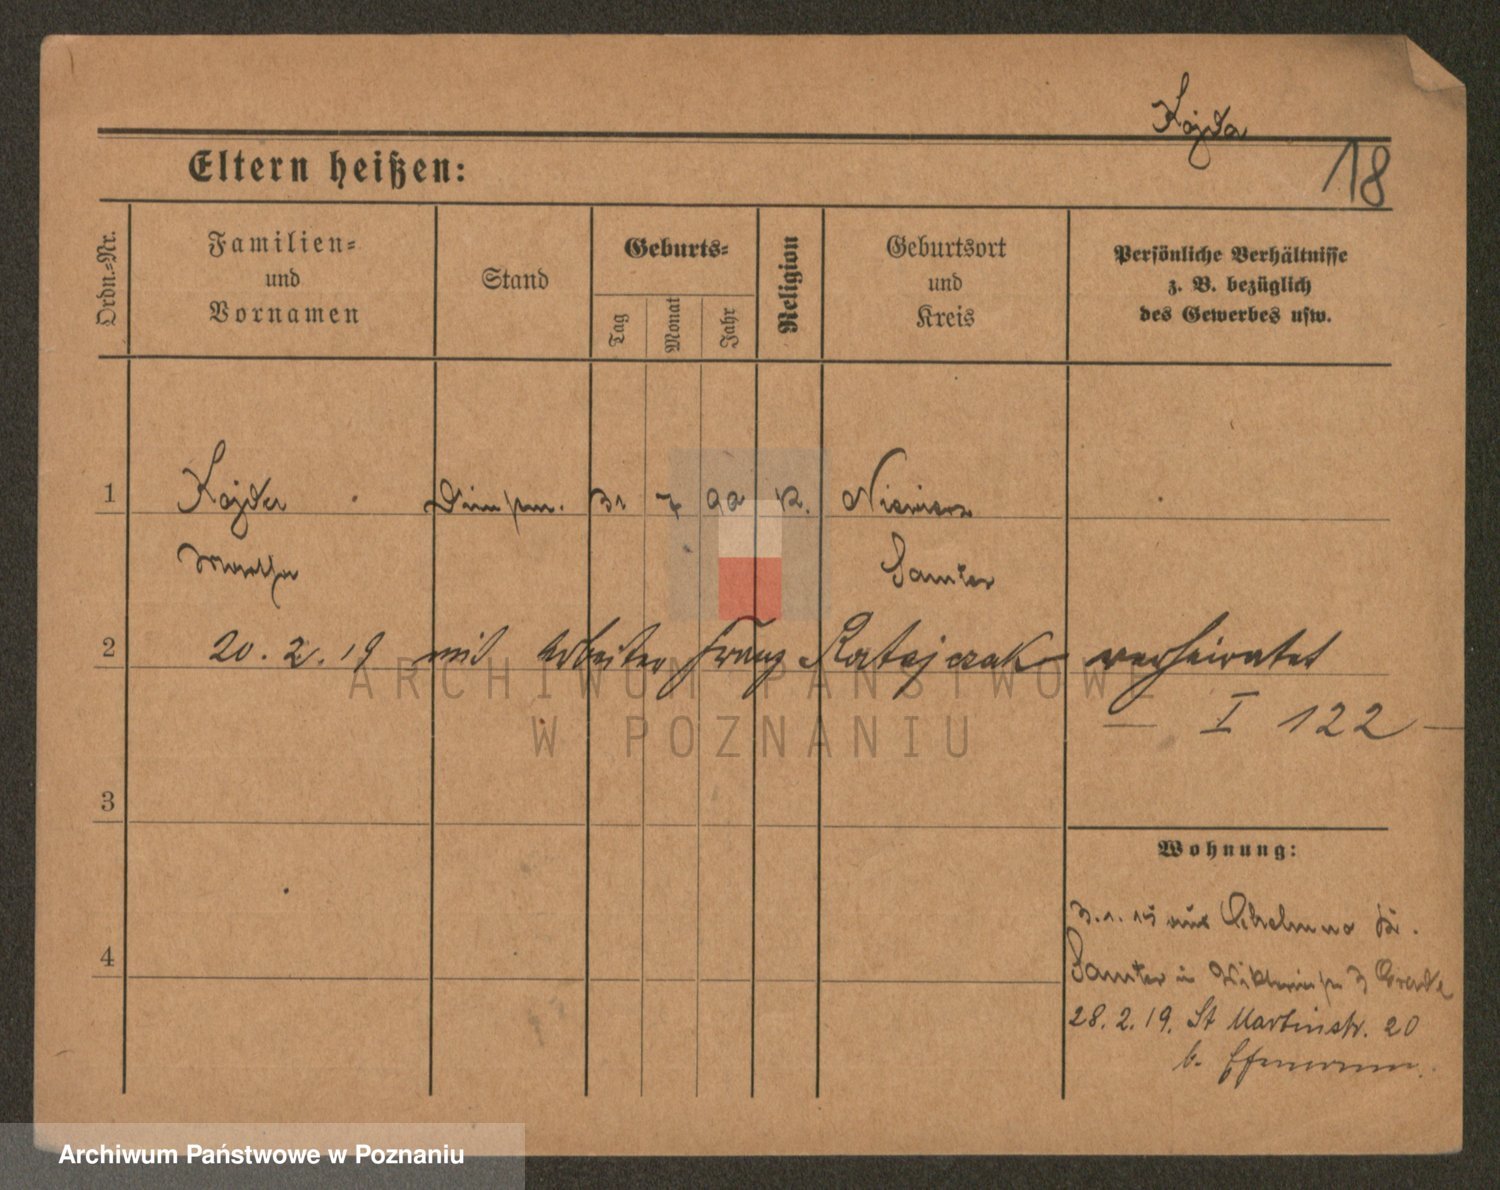 Kajda
18
Eltern heißen:
Ordn.-Nr.
Familien-
und
Vornamen
Stand
Geburts-
Tag
Monat
Jahr
Religion
Geburtsort
und
Kreis
Persönliche Verhältnisse
z. B. bezüglich
des Gewerbes usw.
1 Kajda 31 7 92 K.
Martha Samter
2 20. 2. 19 mit Arbeiter Franz Ratajczak verheiratet
— I 122 —
3
Wohnung:
aus Kr.
4
Samter in
28. 2. 19. St Martinstr. 20
b.
ARCHIWUM PAŃSTWOWE
W POZNANIU
Archiwum Państwowe w Poznaniu